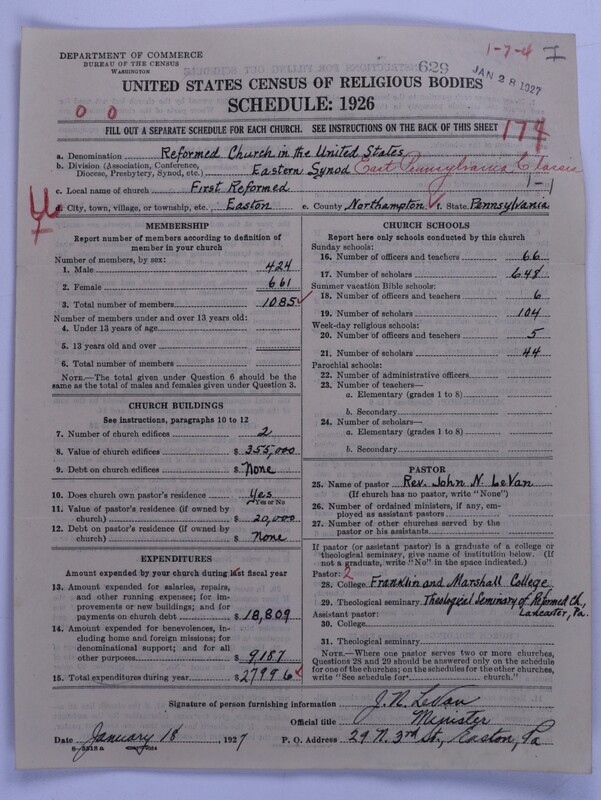 1-7-4 I
DEPARTMENT OF COMMERCE
BUREAU OF THE CENSUS
WASHINGTON
629
JAN 28 1927
UNITED STATES CENSUS OF RELIGIOUS BODIES
SCHEDULE: 1926
0 0
FILL OUT A SEPARATE SCHEDULE FOR EACH CHURCH. SEE INSTRUCTIONS ON THE BACK OF THIS SHEET
174
a. Denomination Reformed Church in the United States
b. Division (Association, Conference, Diocese, Presbytery, Synod, etc.) Eastern Synod East Pennsylvania Classis
c. Local name of church First Reformed 1-1
d. City, town, village, or township, etc. Easton e. County Northampton f. State Pennsylvania
MEMBERSHIP
Report number of members according to definition of
member in your church
Number of members, by sex:
1. Male 424
2. Female 661
3. Total number of members 1085
Number of members under and over 13 years old:
4. Under 13 years of age
5. 13 years old and over
6. Total number of members
NOTE.—The total given under Question 6 should be the
same as the total of males and females given under Question 3.
CHURCH BUILDINGS
See instructions, paragraphs 10 to 12
7. Number of church edifices 2
8. Value of church edifices $355,000
9. Debt on church edifices $None
10. Does church own pastor's residence Yes
Yes or No
11. Value of pastor's residence (if owned by
church) $20,000
12. Debt on pastor's residence (if owned by
church) $None
EXPENDITURES
Amount expended by your church during last fiscal year
13. Amount expended for salaries, repairs,
and other running expenses; for im-
provements or new buildings; and for
payments on church debt $18,809
14. Amount expended for benevolences, in-
cluding home and foreign missions; for
denominational support; and for all
other purposes $9187
15. Total expenditures during year $27996
CHURCH SCHOOLS
Report here only schools conducted by this church
Sunday schools:
16. Number of officers and teachers 66
17. Number of scholars 648
Summer vacation Bible schools:
18. Number of officers and teachers 6
19. Number of scholars 104
Week-day religious schools:
20. Number of officers and teachers 5
21. Number of scholars 44
Parochial schools:
22. Number of administrative officers
23. Number of teachers—
a. Elementary (grades 1 to 8)
b. Secondary
24. Number of scholars—
a. Elementary (grades 1 to 8)
b. Secondary
PASTOR
25. Name of pastor Rev. John N. LeVan
(If church has no pastor, write "None")
26. Number of ordained ministers, if any, em-
ployed as assistant pastors
27. Number of other churches served by the
pastor or his assistants
If pastor (or assistant pastor) is a graduate of a college or
theological seminary, give name of institution below. (If
not a graduate, write "No" in the space indicated.)
Pastor: 2
28. College Franklin and Marshall College
29. Theological seminary Theological Seminary of Reformed Ch.,
Assistant pastor: Lancaster, Pa.
30. College
31. Theological seminary
NOTE.—Where one pastor serves two or more churches,
Questions 28 and 29 should be answered only on the schedule
for one of the churches; on the schedules for the other churches,
write "See schedule for church."
Signature of person furnishing information J. N. LeVan
Official title Minister
Date January 18, 1927 P. O. Address 29 N. 3rd St., Easton, Pa